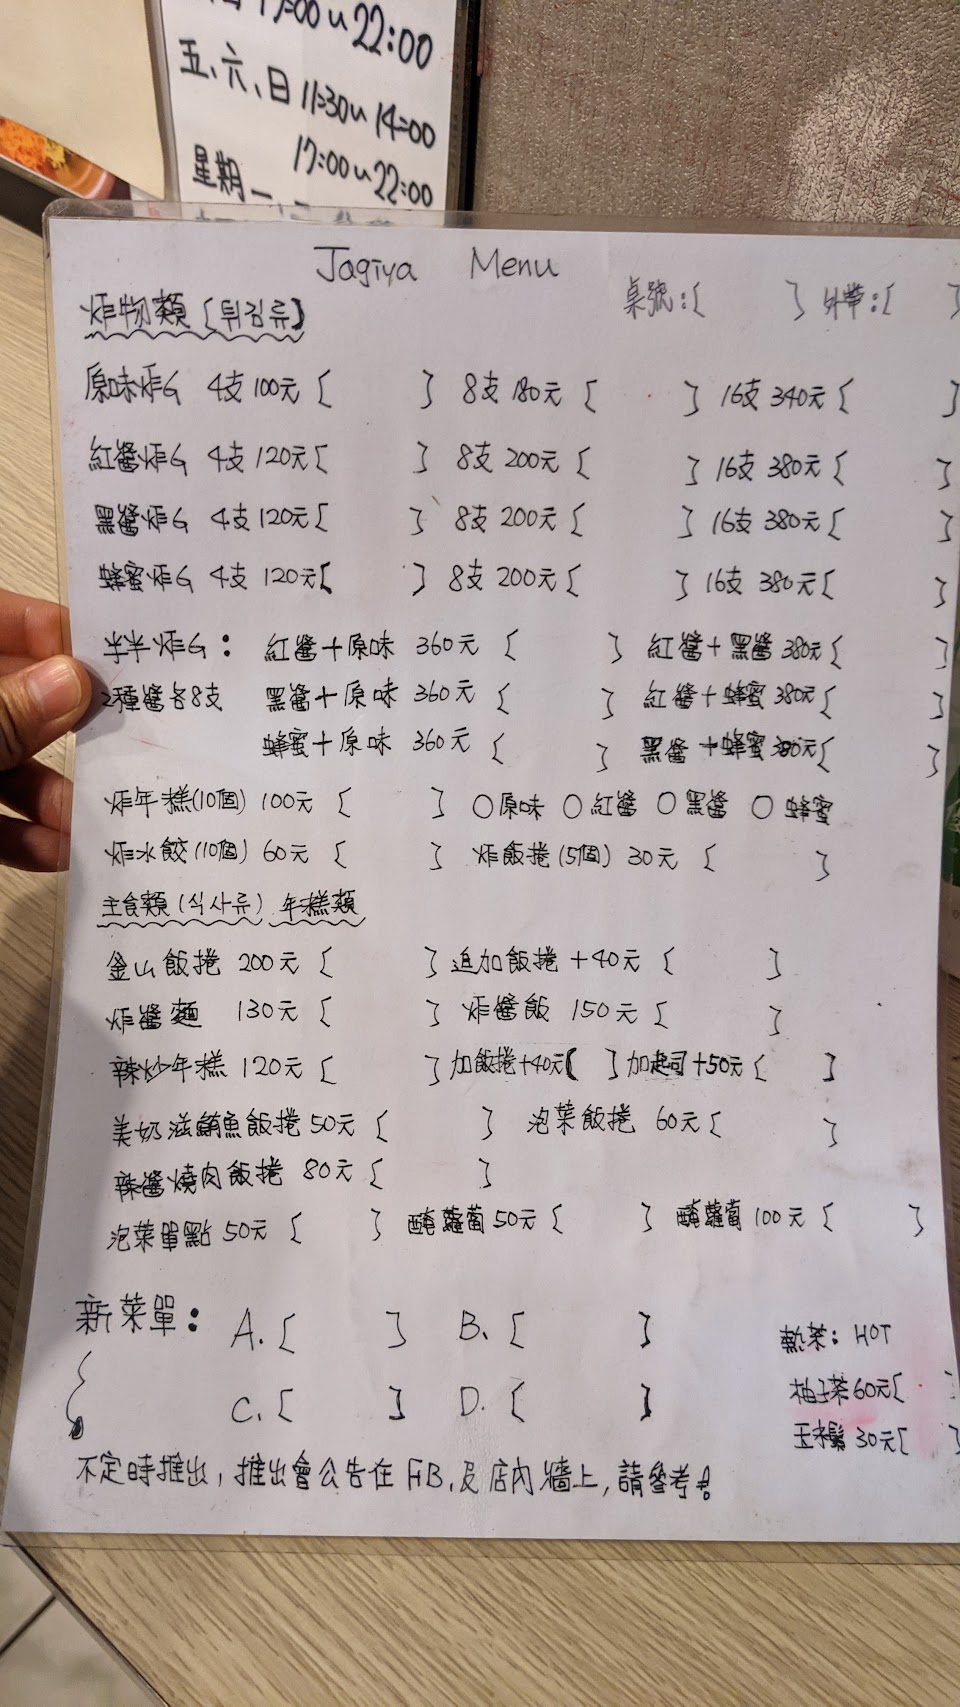 17:00~22:00
五、六、日 11:30~14:00
17:00~22:00
星期一
Jagiya Menu
桌號:[ ] 外帶:[ ]
炸物類 [튀김류]
原味炸G 4支100元 [ ] 8支180元 [ ] 16支340元 [ ]
紅醬炸G 4支120元 [ ] 8支200元 [ ] 16支380元 [ ]
黑醬炸G 4支120元 [ ] 8支200元 [ ] 16支380元 [ ]
蜂蜜炸G 4支120元 [ ] 8支200元 [ ] 16支380元 [ ]
半半炸G: 紅醬+原味 360元 [ ] 紅醬+黑醬 380元 [ ]
2種醬各8支 黑醬+原味 360元 [ ] 紅醬+蜂蜜 380元 [ ]
蜂蜜+原味 360元 [ ] 黑醬+蜂蜜 元 [ ]
炸年糕(10個) 100元 [ ] ○原味 ○紅醬 ○黑醬 ○蜂蜜
炸水餃(10個) 60元 [ ] 炸飯捲(5個) 30元 [ ]
主食類(식사류) 年糕類
金山飯捲 200元 [ ] 追加飯捲+40元 [ ]
炸醬麵 130元 [ ] 炸醬飯 150元 [ ]
辣炒年糕 120元 [ ] 加飯捲+40元[ ] 加起司+50元 [ ]
美奶滋鮪魚飯捲 50元 [ ] 泡菜飯捲 60元 [ ]
辣醬燒肉飯捲 80元 [ ]
泡菜單點 50元 [ ] 醃蘿蔔 50元 [ ] 醃蘿蔔 100元 [ ]
新菜單: A. [ ] B. [ ]
C. [ ] D. [ ]
熱茶: HOT
柚子茶 60元 [ ]
玉米鬚 30元 [ ]
不定時推出,推出會公告在FB.及店內牆上,請參考!